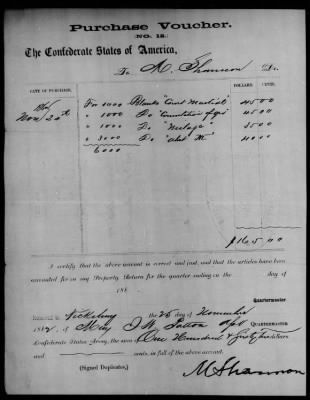 Purchase Voucher.
[NO. 12.]
The Confederate States of America,
To M. Shannon Dr.
DATE OF PURCHASE. DOLLARS. CENTS.
Nov 20th For 1000 Blanks "Court Martials" 45 00
" 1000 Do 45 00
" 1000 Do 35 00
" 3000 Do 40 00
6000
$165 00
I certify that the above account is correct and just, and that the articles have been
accounted for on my Property Return for the quarter ending on the day of
186
Quartermaster
Vicksburg the 25 day of November
1862, of Maj J W Patton QUARTERMASTER
Confederate States Army, the sum of One Hundred & Sixty five dollars
and cents, in full of the above account.
(Signed Duplicates.)
M Shannon